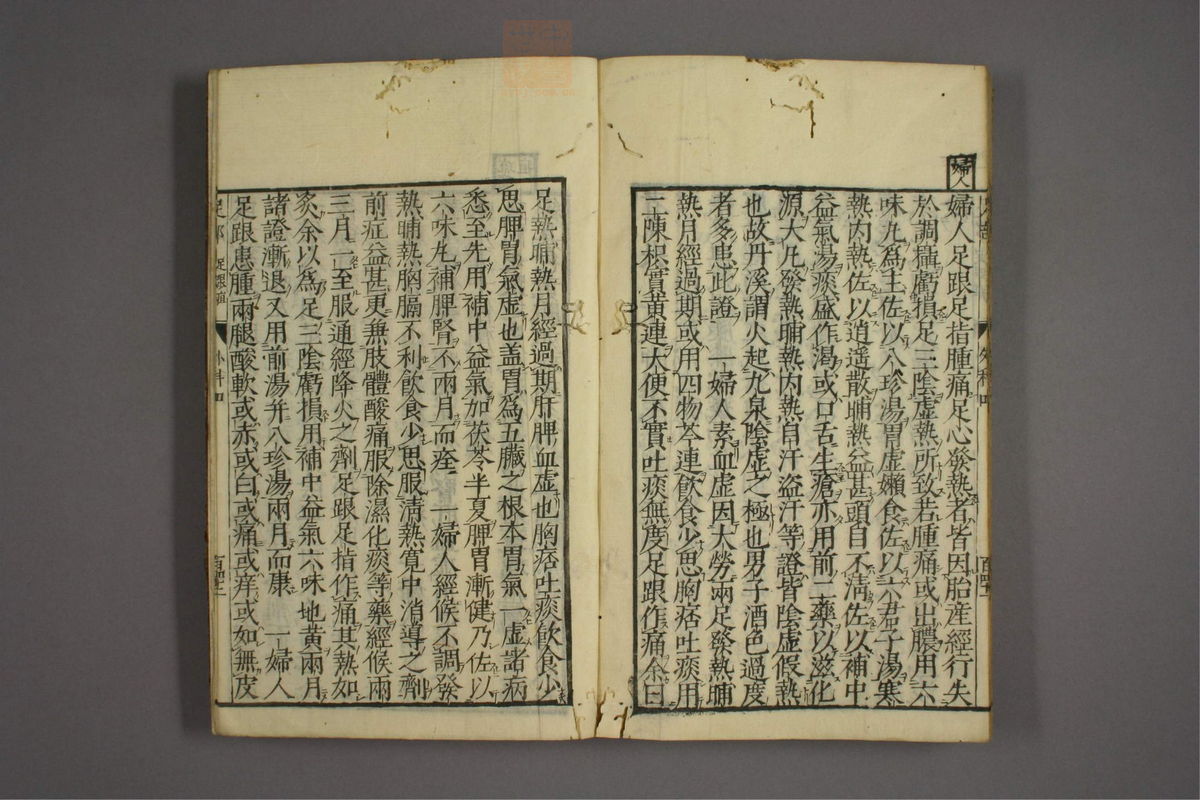 婦人
婦人足跟足指腫痛足心發熱者皆因胎産經行失
於調攝虧損足三陰虛熱所致若腫痛或出膿用六
味丸爲主佐以八珍湯胃虛懶食佐以六君子湯寒
熱内熱佐以逍遥散晡熱益甚頭目不淸佐以補中
益氣湯痰盛作渴或口舌生瘡亦用前二藥以滋化
源大凡發熱晡熱内熱自汗盗汗等證皆陰虛假熱
也故丹溪謂火起九泉陰虛之極也男子酒色過度
者多患此證　一婦人素血虛因大勞兩足發熱晡
熱月經過期或用四物芩連飲食少思胸痞吐痰用
二陳枳實黄連大便不實吐痰無度足跟作痛余曰
足熱晡熱月經過期肝脾血虛也胸痞吐痰飲食少
思脾胃氣虛也盖胃爲五臓之根本胃氣一虛諸病
悉至先用補中益氣加茯苓半夏脾胃漸健乃佐以
六味丸補脾腎不兩月而痊　一婦人經候不調發
熱晡熱胸膈不利飲食少思服淸熱寛中消導之劑
前症益甚更無肢體酸痛服除濕化痰等藥經候兩
三月一至服通經降火之劑足跟足指作痛其熱如
炙余以爲足三陰虧損用補中益氣六味地黄兩月
諸證漸退又用前湯并八珍湯兩月而康　一婦人
足跟患腫兩腿酸軟或赤或白或痛或痒或如無皮
足部
足跟疽
外科四